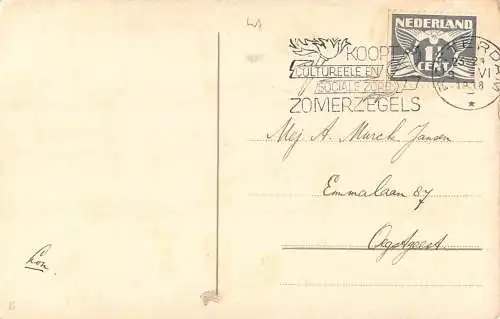 NEDERLAND
1½
CENT
KOOPT
CULTUREELE EN
SOCIALE ZORG
ZOMERZEGELS
VI
Mej. A. Marck Jansen
Emmalaan 87
Oegstgeest
Lon